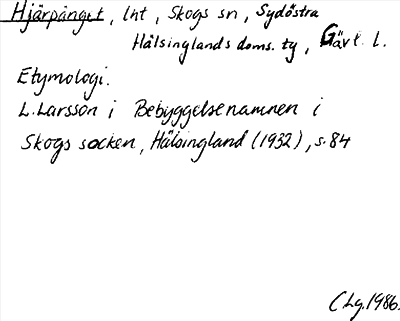 Hjärpänget, Int, Skogs sn, Sydöstra
Hälsinglands doms. tg, Gävl. l.
Etymologi.
L. Larsson i Bebyggelsenamnen i
Skogs socken, Hälsingland (1932), s. 84
C Lg. 1986.